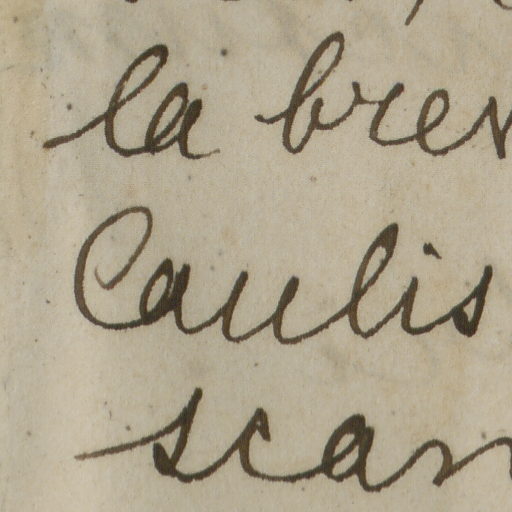 la brev
Caulis
scan